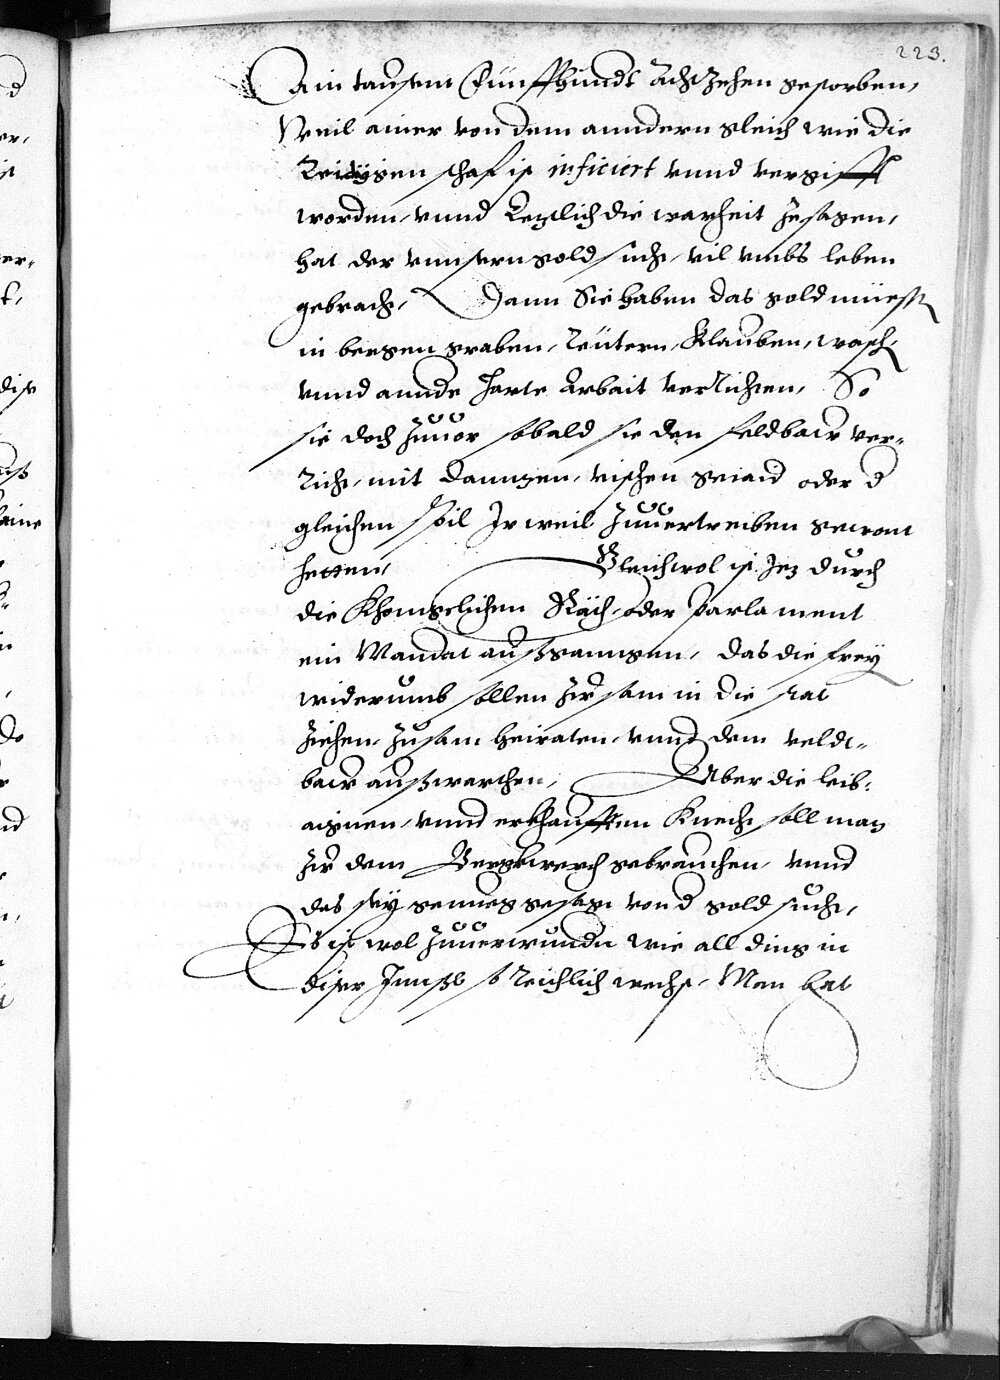 223.
Ain tausent Fünffhundt Achtzehen gestorben,
Weil ainer von dem anndern gleich wie die
Reidigen schaf ist inficiert vnnd vergifft
worden, vnnd Lezlich die warheit zesagen,
hat der vnnsern gold sucht, vil vmbs leben
gebracht, Dann Sie haben das gold müessen
in bergen graben, Reütern, Klauben, waschen
vnnd annde harte Arbait verrichten, So
sie doch zuuor sobald sie den feldbaw ver-
richt, mit danntzen, vischen gejaid oder d
gleichen spil Ir weil zuuertreiben gewont
hetten, Gleichwol ist Jez durch
die Khonigelichen Räth, oder parlament
ein Mandat außganngen, das die frey
widerumb sollen zusam in die stat
ziehen, zusam heiraten, vnnd dem veldt-
baw außwarthen, Aber die leib-
aignen, vnnd erkhaufften Knecht soll man
zu dem Bergkwerch gebrauchen, vnnd
des sey genueg gesagt von d gold sucht,
Es ist wol zuuerwundn wie all ding in
diser Innsl so reichlich wechst, Man hat